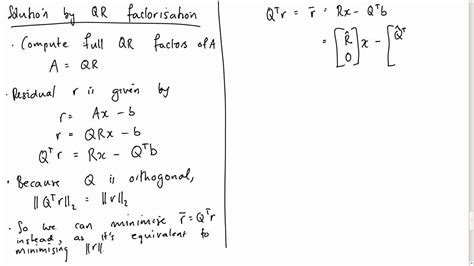 Solution by QR factorisation
· Compute full QR factors of A
A = QR
· Residual r is given by
r = Ax - b
r = QRx - b
Qᵀr = Rx - Qᵀb
· Because Q is orthogonal,
‖Qᵀr‖₂ = ‖r‖₂
· So we can minimise r̄ = Qᵀr
instead, as it's equivalent to
minimising ‖r‖
Qᵀr = r̄ = Rx - Qᵀb
= [R̂ 0] x - [Q̂ᵀ